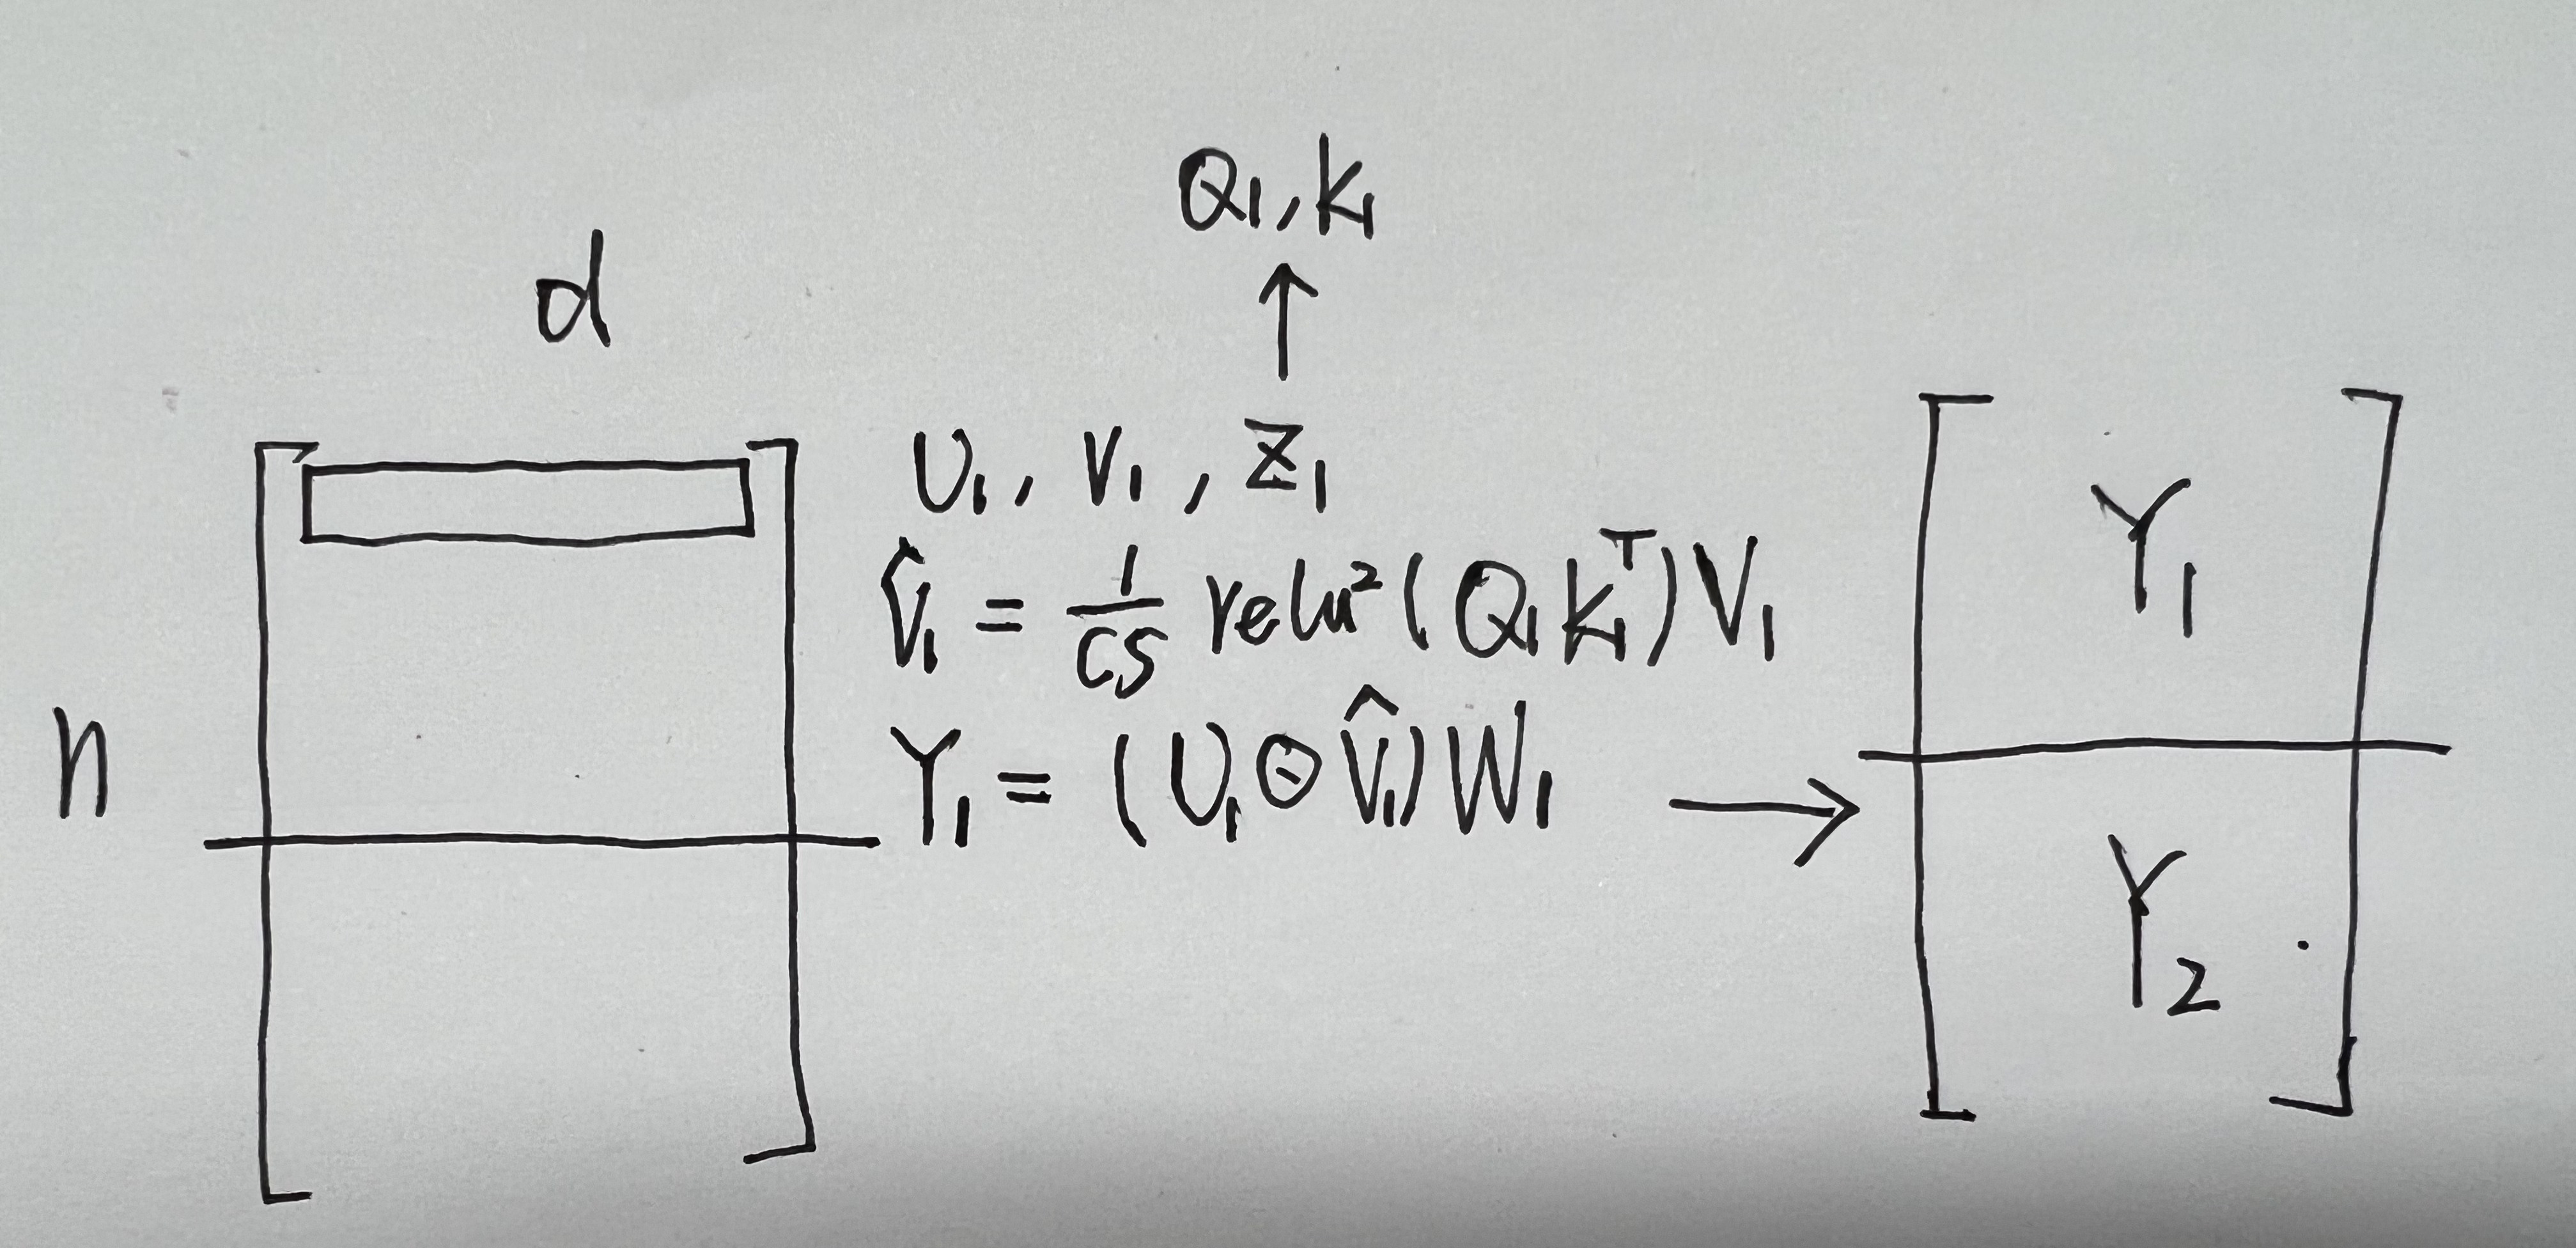 d
n
Q₁, K₁
↑
U₁, V₁, Z₁
V̂₁ = 1/cs relu²(Q₁K₁ᵀ)V₁
Y₁ = (U₁⊙V̂₁)W₁ →
Y₁
Y₂